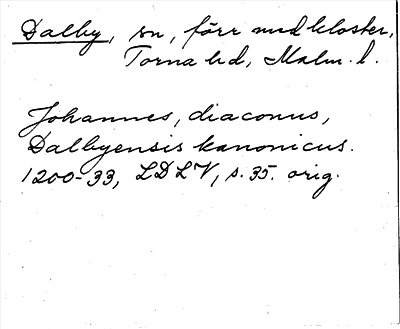 Dalby, sn, förr med kloster,
Torna hd, Malm. l.
Johannes, diaconus,
Dalbyensis kanonicus.
1200-33, LDLV, s. 35. orig.